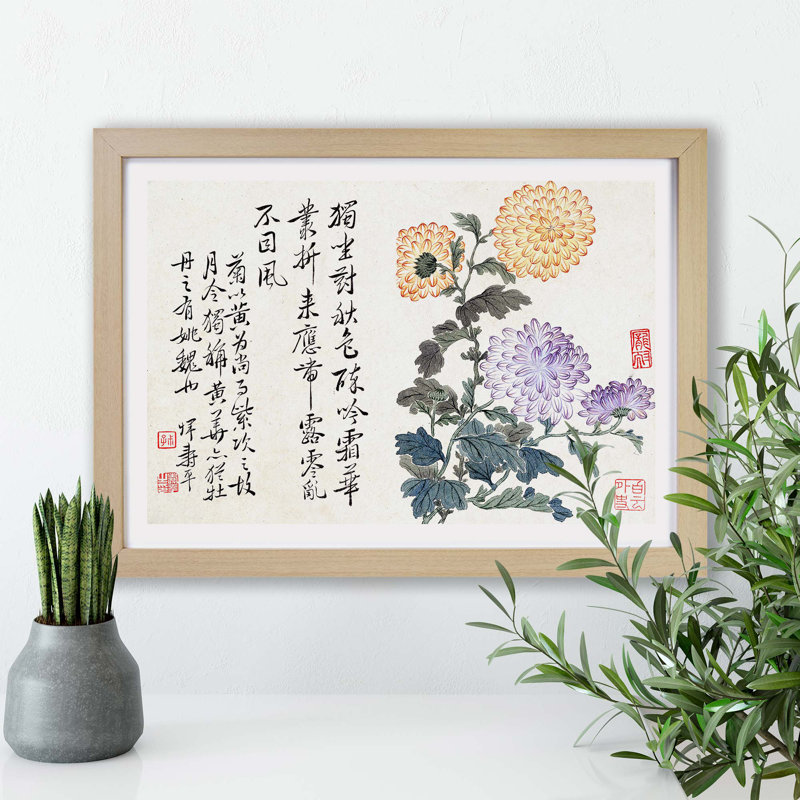 獨坐對秋色吟霜華
叢折来應帶露零亂
不因風
菊以黄为尚而紫次之故
月令獨稱黄華亦猶牡
丹之有姚魏也
惲壽平
白云外史